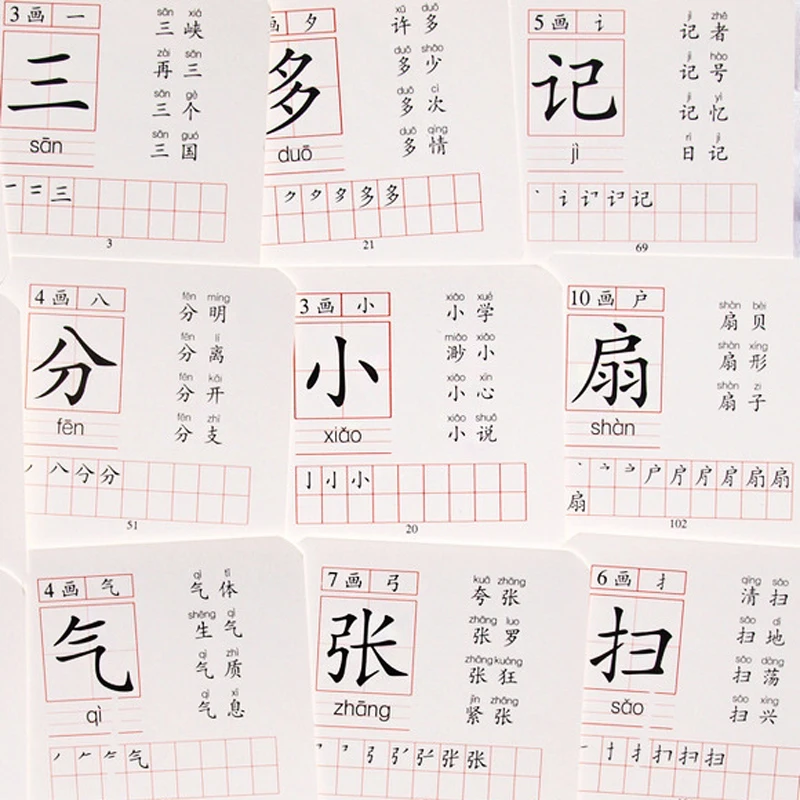 3画 一
三
sān
sān xiá
三峡
zài sān
再三
sān gè
三个
sān guó
三国
一 二 三
3
画 夕
多
duō
xǔ duō
许多
duō shǎo
多少
duō cì
多次
duō qíng
多情
ク 夕 多 多 多
21
5画 讠
记
jì
jì zhě
记者
jì hào
记号
jì yì
记忆
rì jì
日记
丶 讠 记 记
69
4画 八
分
fēn
fēn míng
分明
fēn lí
分离
fēn kāi
分开
fēn zhī
分支
丿 八 分 分
51
3画 小
小
xiǎo
xiǎo xué
小学
miǎo xiǎo
渺小
xiǎo xīn
小心
xiǎo shuō
小说
亅 小 小
20
10画 户
扇
shàn
shàn bèi
扇贝
shàn xíng
扇形
shàn zi
扇子
户 扇 扇
扇
102
4画 气
气
qì
qì tǐ
气体
shēng qì
生气
qì zhì
气质
qì xī
气息
丿 𠂉 气
7画 弓
张
zhāng
kuā zhāng
夸张
zhāng luo
张罗
zhāng kuáng
张狂
jǐn zhāng
紧张
弓 张 张
6画 扌
扫
sǎo
qīng sǎo
清扫
sǎo dì
扫地
sǎo dàng
扫荡
sǎo xìng
扫兴
一 扌 扫 扫